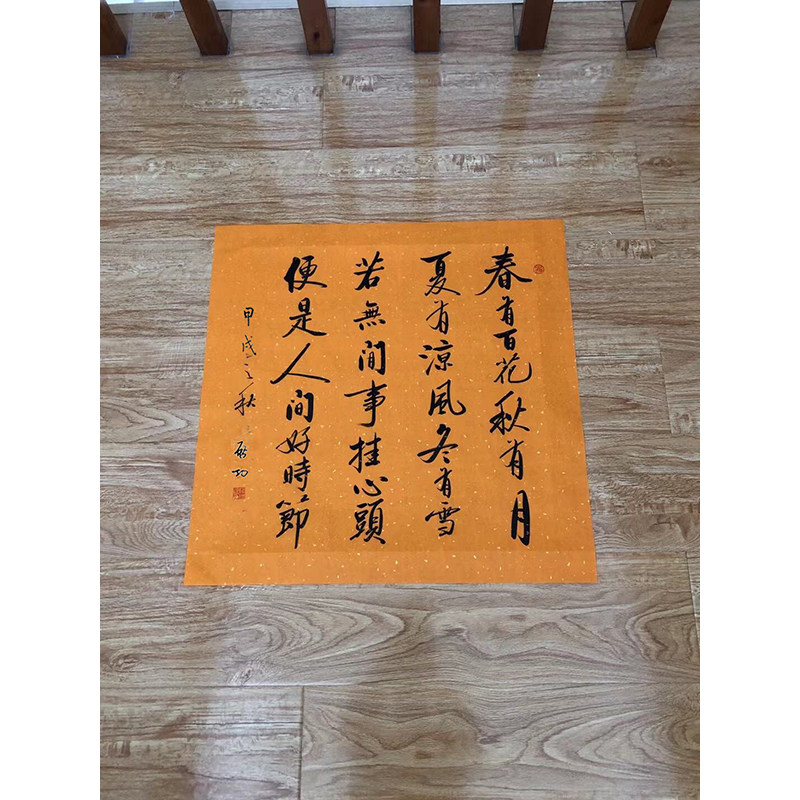 春有百花秋有月
夏有涼風冬有雪
若無閒事挂心頭
便是人间好時節
甲戌之秋 启功